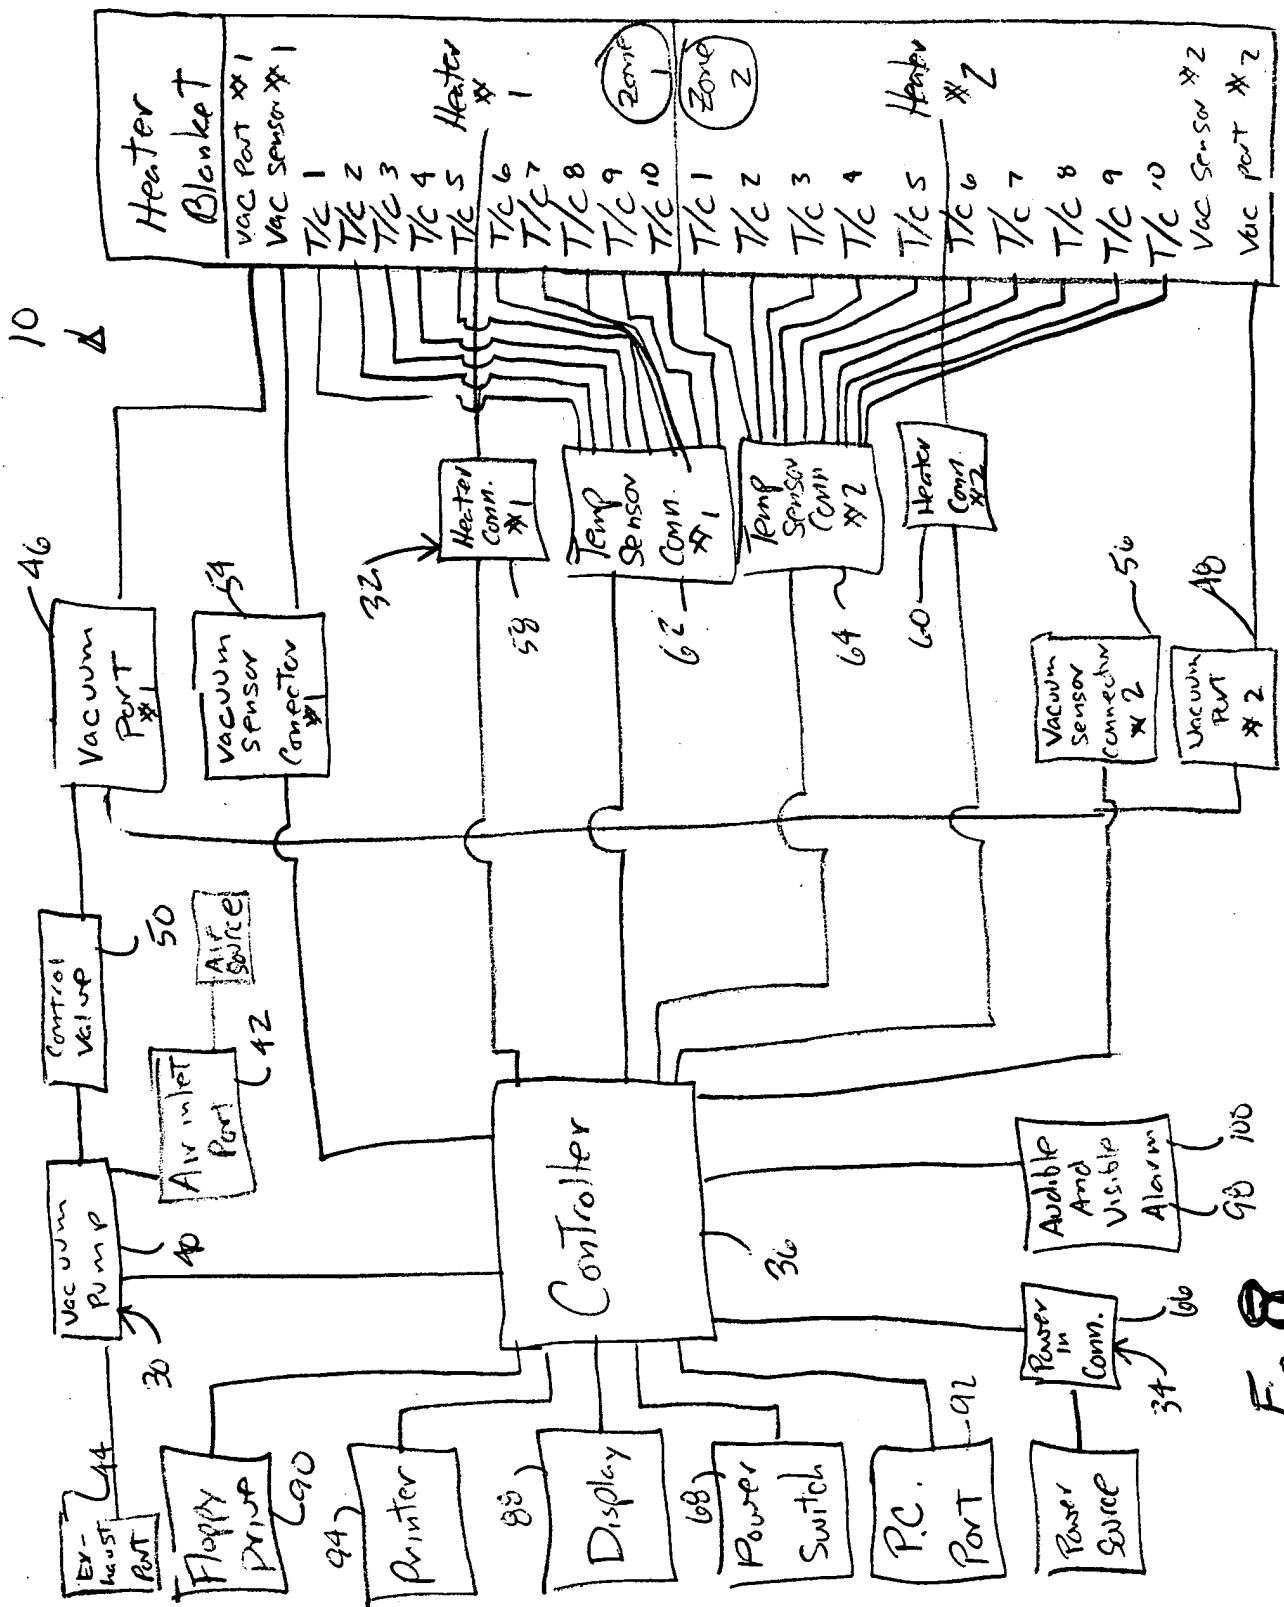 10
Heater
Blanket
Vac Port #1
Vac Sensor #1
T/C 1
T/C 2
T/C 3
T/C 4
T/C 5
T/C 6
T/C 7
T/C 8
T/C 9
T/C 10
Heater
#
1
Zone
1
Zone
2
T/C 1
T/C 2
T/C 3
T/C 4
T/C 5
T/C 6
T/C 7
T/C 8
T/C 9
T/C 10
Heater
#
2
Vac Sensor #2
Vac port #2
46
Vacuum
Port
#1
54
Vacuum
Sensor
Conector
#1
32
Heater
Conn.
#1
58
Temp
Sensor
Conn.
#1
62
Temp
Sensor
Conn
#2
64
Heater
Conn.
#2
60
Vacuum
Sensor
Connector
#2
56
Vacuum
Port
#2
48
Control
Valve
50
Air
Source
Air inlet
Port
42
Vacuum
Pump
40
30
Controller
36
Audible
And
Visible
Alarm
98
100
Power
in
Conn.
66
34
Ex-
haust
Port
44
Floppy
Drive
90
Printer
94
Display
88
Power
Switch
68
P.C.
Port
92
Power
Source
8